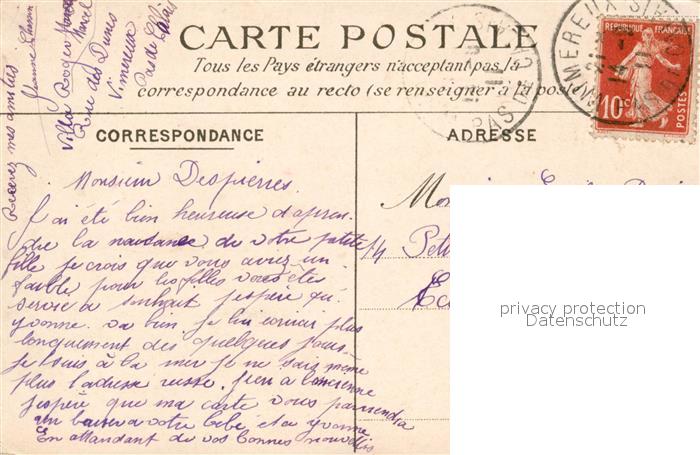 CARTE POSTALE
Tous les Pays étrangers n'acceptant pas la
correspondance au recto (se renseigner à la poste)
CORRESPONDANCE
ADRESSE
Monsieur Despierres.
J'ai été bien heureuse d'appren
dre la naissance de votre petite
fille je crois que vous aviez un
faible pour les filles vous êtes
servie a souhait j'espère qu'
yvonne va bien. je lui écrirai plus
longuement des quelques jours
je suis à la mer je ne sais même
plus l'adresse
j'espère que ma carte vous parviendra
un baiser a votre bébé et a yvonne
En attendant de vos bonnes nouvelles
Recevez mes amitiés
Villa Roger
Rue des Dunes
Vimereux
Pas de Calais
14
REPUBLIQUE FRANÇAISE
10c
POSTES
PAS DE C
privacy protection
Datenschutz